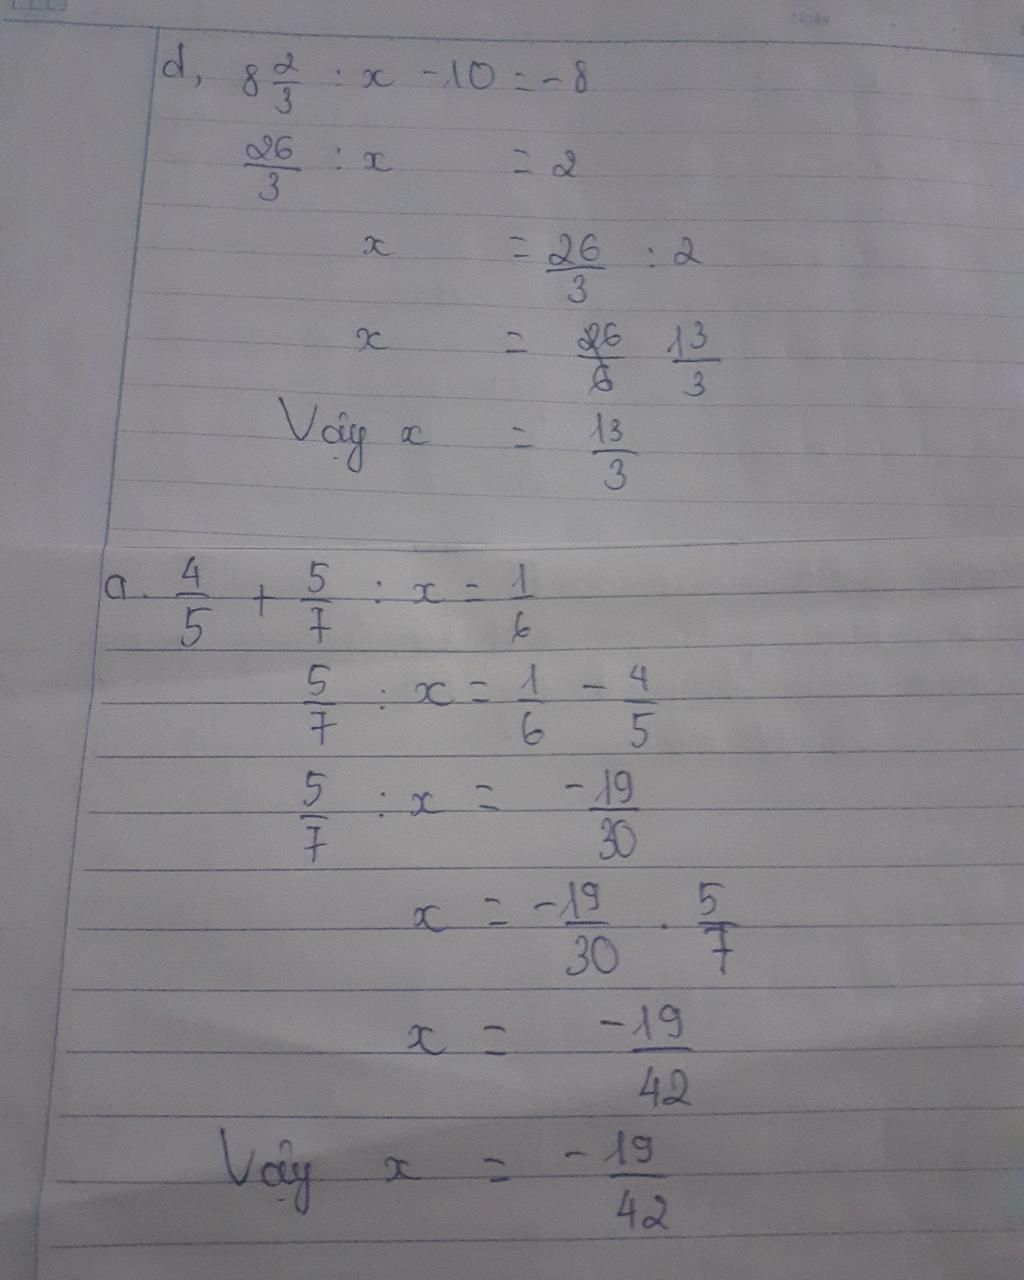 Ngày
d, 8 2/3 : x - 10 = -8
26/3 : x = 2
x = 26/3 : 2
x = 26/6 13/3
Vậy x = 13/3
a. 4/5 + 5/7 : x = 1/6
5/7 : x = 1/6 - 4/5
5/7 : x = -19/30
x = -19/30 . 5/7
x = -19/42
Vậy x = -19/42